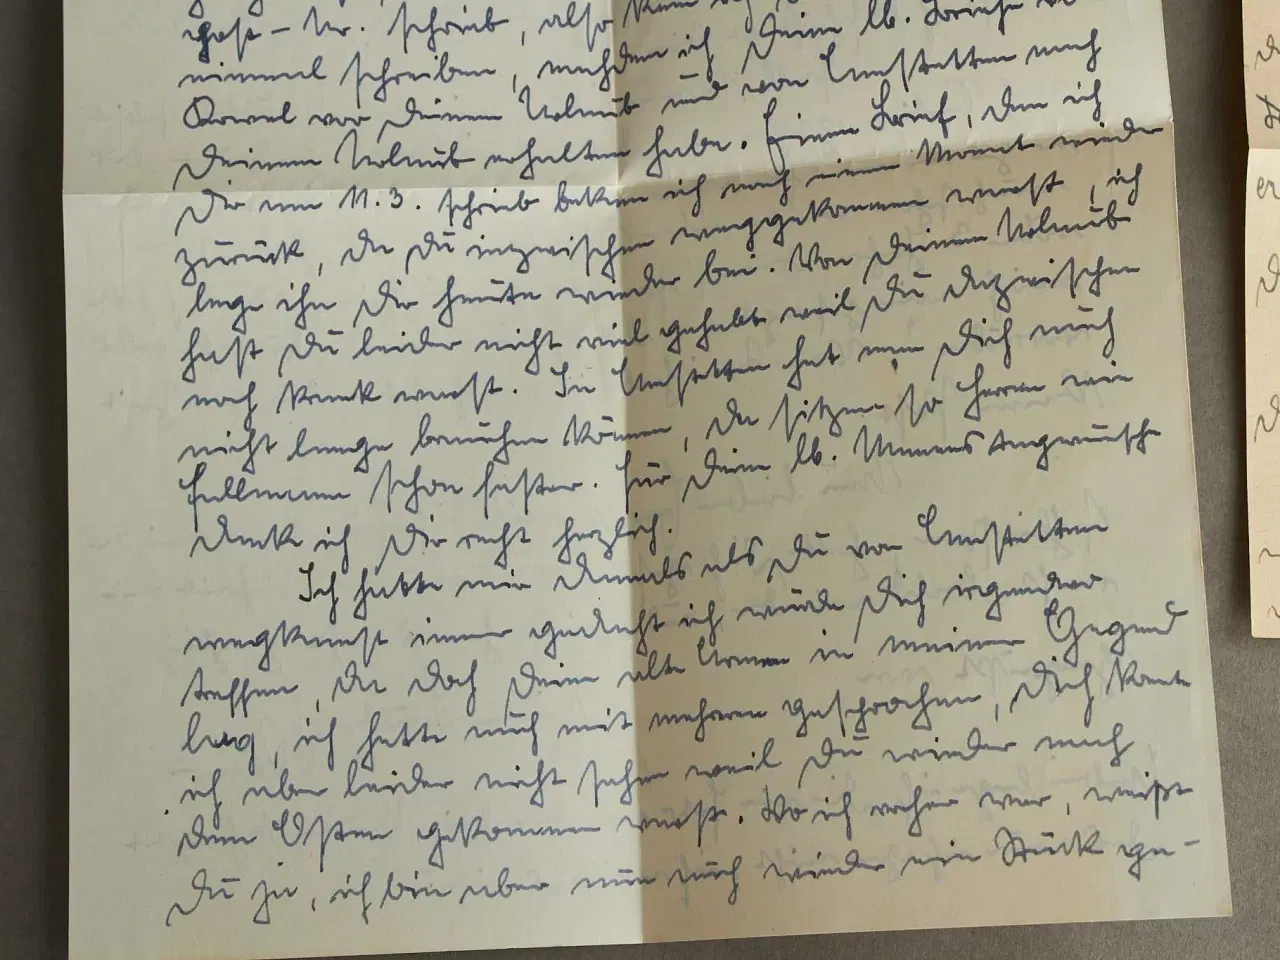 post-Nr. schrieb, also kann
einmal schreiben, nachdem ich Deine lb. Briefe
Kowel vor Deinem Urlaub und von Amstetten nach
Deinem Urlaub erhalten habe. Einen Brief, den ich
Dir am 11.3. schrieb bekam ich nach einem Monat wieder
zurück, da Du inzwischen weggekommen warst, ich
lege ihn Dir heute wieder bei. Von Deinem Urlaub
hast Du leider nicht viel gehabt weil Du dazwischen
noch krank warst. In Amstetten hat man Dich auch
nicht lange brauchen können, da sitzen so Herren wie
Fellmann schon fester. Für Deine lb. Namenstagwünsche
danke ich Dir recht herzlich.
Ich hatte mir damals als Du von Amstetten
wegkamst immer gedacht ich würde Dich irgendwo
treffen, da doch Deine alte Armee in meiner Gegend
lag, ich hatte auch mit mehreren gesprochen, Dich konnte
ich aber leider nicht sehen weil Du wieder nach
dem Osten gekommen warst. Wo ich vorher war, weißt
Du ja, ich bin aber nun auch wieder ein Stück ge-